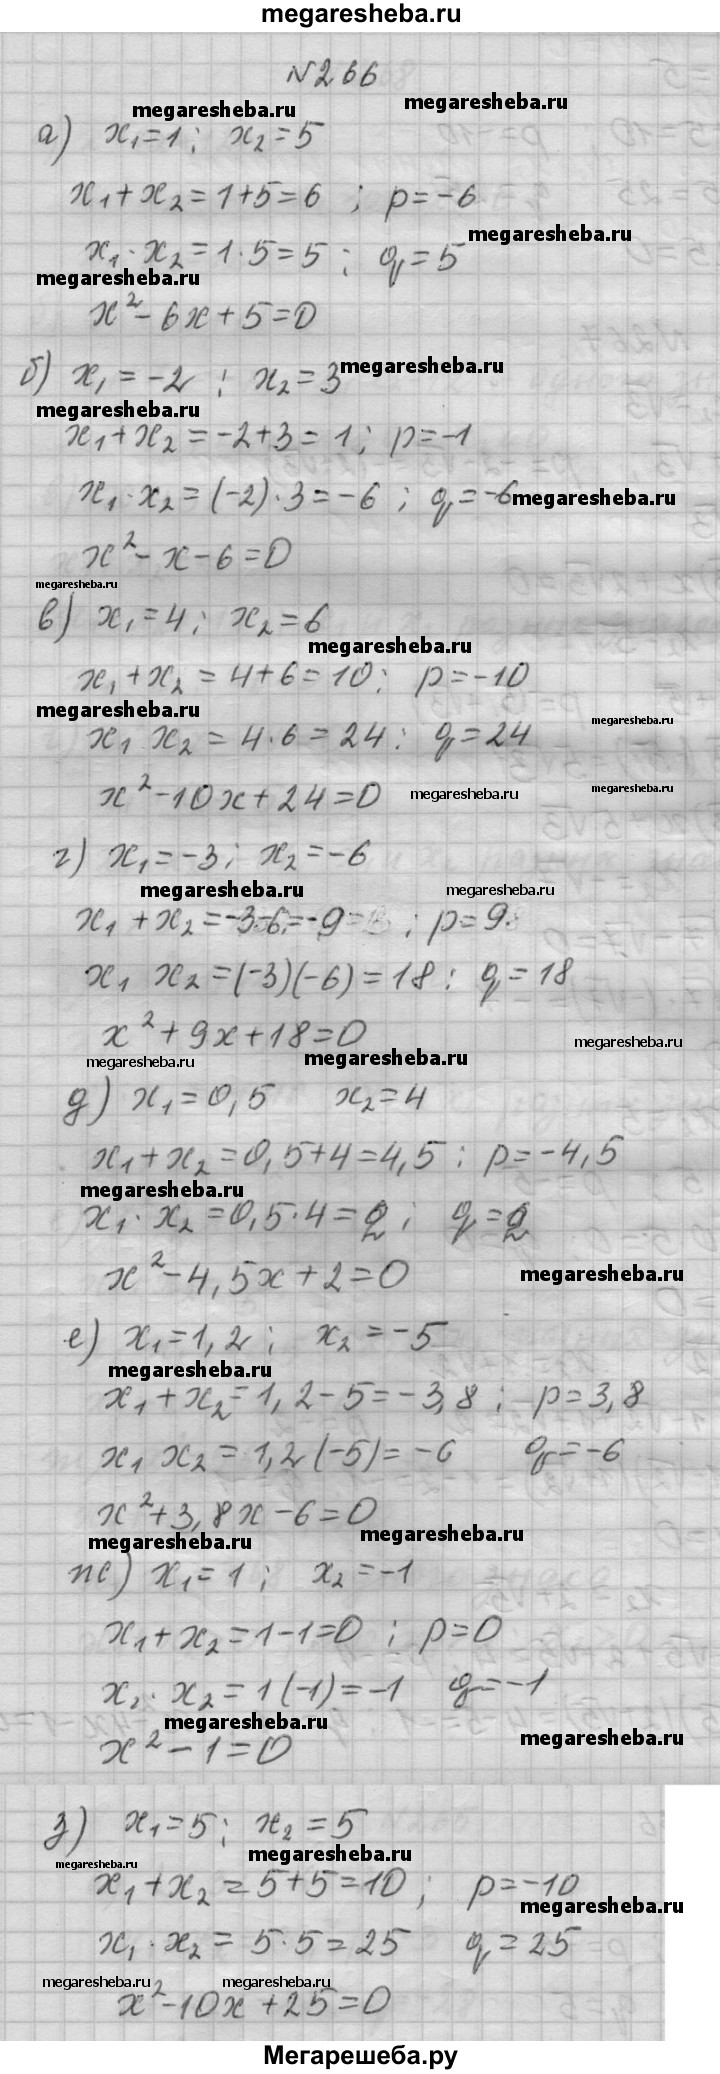 megaresheba.ru
№266
megaresheba.ru megaresheba.ru
а) x₁=1; x₂=5
x₁+x₂=1+5=6 ; p=-6
megaresheba.ru
x₁·x₂=1·5=5; q=5
megaresheba.ru
x²-6x+5=0
б) x₁=-2 ; x₂=3
megaresheba.ru
megaresheba.ru
x₁+x₂=-2+3=1; p=-1
x₁·x₂=(-2)·3=-6 ; q=-6
megaresheba.ru
x²-x-6=0
megaresheba.ru
в) x₁=4; x₂=6
megaresheba.ru
x₁+x₂=4+6=10; p=-10
megaresheba.ru megaresheba.ru
x₁ x₂=4·6=24; q=24
x²-10x+24=0
megaresheba.ru megaresheba.ru
г) x₁=-3; x₂=-6
megaresheba.ru megaresheba.ru
x₁+x₂=-3-6=-9 ; p=9
x₁ x₂=(-3)(-6)=18; q=18
x²+9x+18=0
megaresheba.ru megaresheba.ru megaresheba.ru
д) x₁=0,5 x₂=4
x₁+x₂=0,5+4=4,5; p=-4,5
megaresheba.ru
x₁·x₂=0,5·4=2; q=2
x²-4,5x+2=0
megaresheba.ru
е) x₁=1,2; x₂=-5
megaresheba.ru
x₁+x₂=1,2-5=-3,8; p=3,8
x₁ x₂=1,2(-5)=-6 q=-6
x²+3,8x-6=0
megaresheba.ru megaresheba.ru
ж) x₁=1; x₂=-1
x₁+x₂=1-1=0; p=0
x₁·x₂=1(-1)=-1 q=-1
megaresheba.ru megaresheba.ru
x²-1=0
з) x₁=5; x₂=5
megaresheba.ru megaresheba.ru
x₁+x₂=5+5=10; p=-10
megaresheba.ru
x₁·x₂=5·5=25 q=25
megaresheba.ru megaresheba.ru
x²-10x+25=0
Мегарешеба.ру